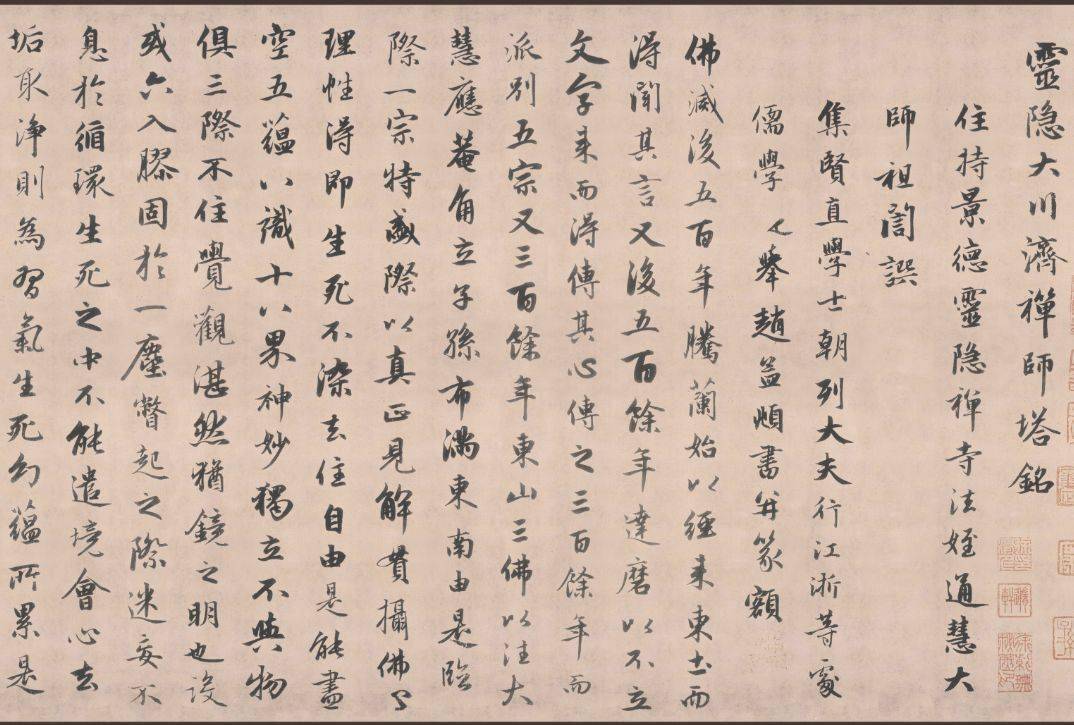 靈隐大川濟禪師塔銘
住持景德靈隐禅寺法姪通慧大
師祖誾譔
集賢直學士朝列大夫行江浙等處
儒學舉趙孟頫書并篆額
佛滅後五百年騰蘭始以經来東土而
得聞其言又後五百餘年達磨以不立
文字来而得傳其心傳之三百餘年而
派别五宗又三百餘年東山三佛以法大
慧應菴角立子孫布滿東南由是臨
際一宗特盛際以真正見解貫攝佛
理性得即生死不染去住自由是能盡
空五蘊八識十八界神妙獨立不與物
俱三際不住覺觀湛然猶鏡之明也設
或六入膠固於一塵瞥起之際迷妄不
息於循環生死之中不能遣境會心去
垢取淨則為習氣生死幻蘊所累是